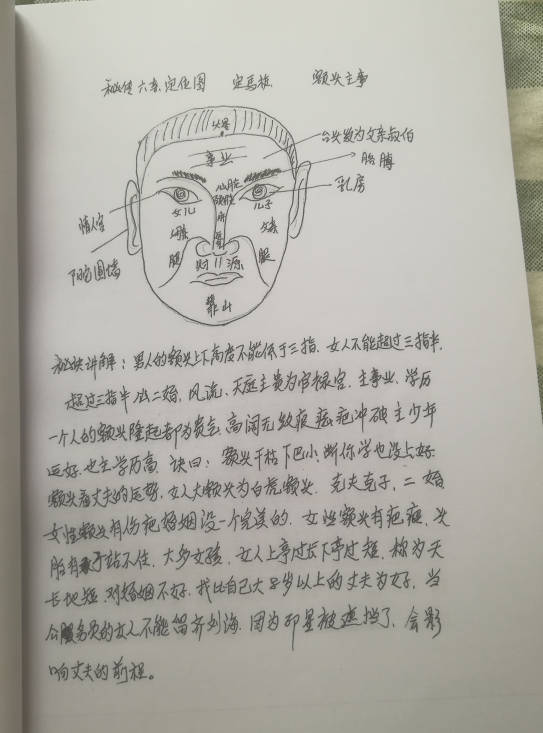 秘传六亲定位图 定寿枕 额头主事
火星
事业
台头纹为父亲叔伯
胳膊
乳房
心脏
女儿
儿子
情人宫
腿
腿
财 源
阳宅围墙
靠山
秘诀讲解:男人的额头上下高度不能低于三指.女人不能超过三指半.
超过三指半必二婚,风流、天庭主贵为官禄宫.主事业、学历
一个人的额头隆起者都为贵气.高阔无纹痕痣疤冲破主少年
运好.也主学历高.诀曰:额头干枯下巴小.断你学也没上好.
额头看丈夫的运势.女人大额头为白虎额头.克夫克子,二婚
女性额头有伤疤婚姻没一个完美的.女性额头有疤痕,头
胎有子站不住.大多女孩,女人上亭过长下亭过短,称为天
长地短.对婚姻不好.找比自己大8岁以上的丈夫为好.当
公服务员的女人不能留齐刘海.因为印星被遮挡了.会影
响丈夫的前程。